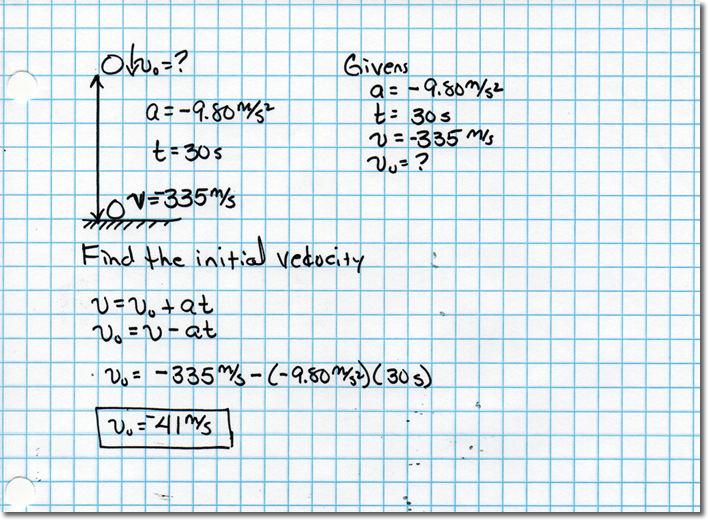 v₀=?
a=-9.80 m/s²
t=30s
v=-335 m/s
Givens
a = -9.80 m/s²
t = 30 s
v = -335 m/s
v₀ = ?
Find the initial velocity
v = v₀ + at
v₀ = v - at
v₀ = -335 m/s - (-9.80 m/s²)(30 s)
v₀ = -41 m/s